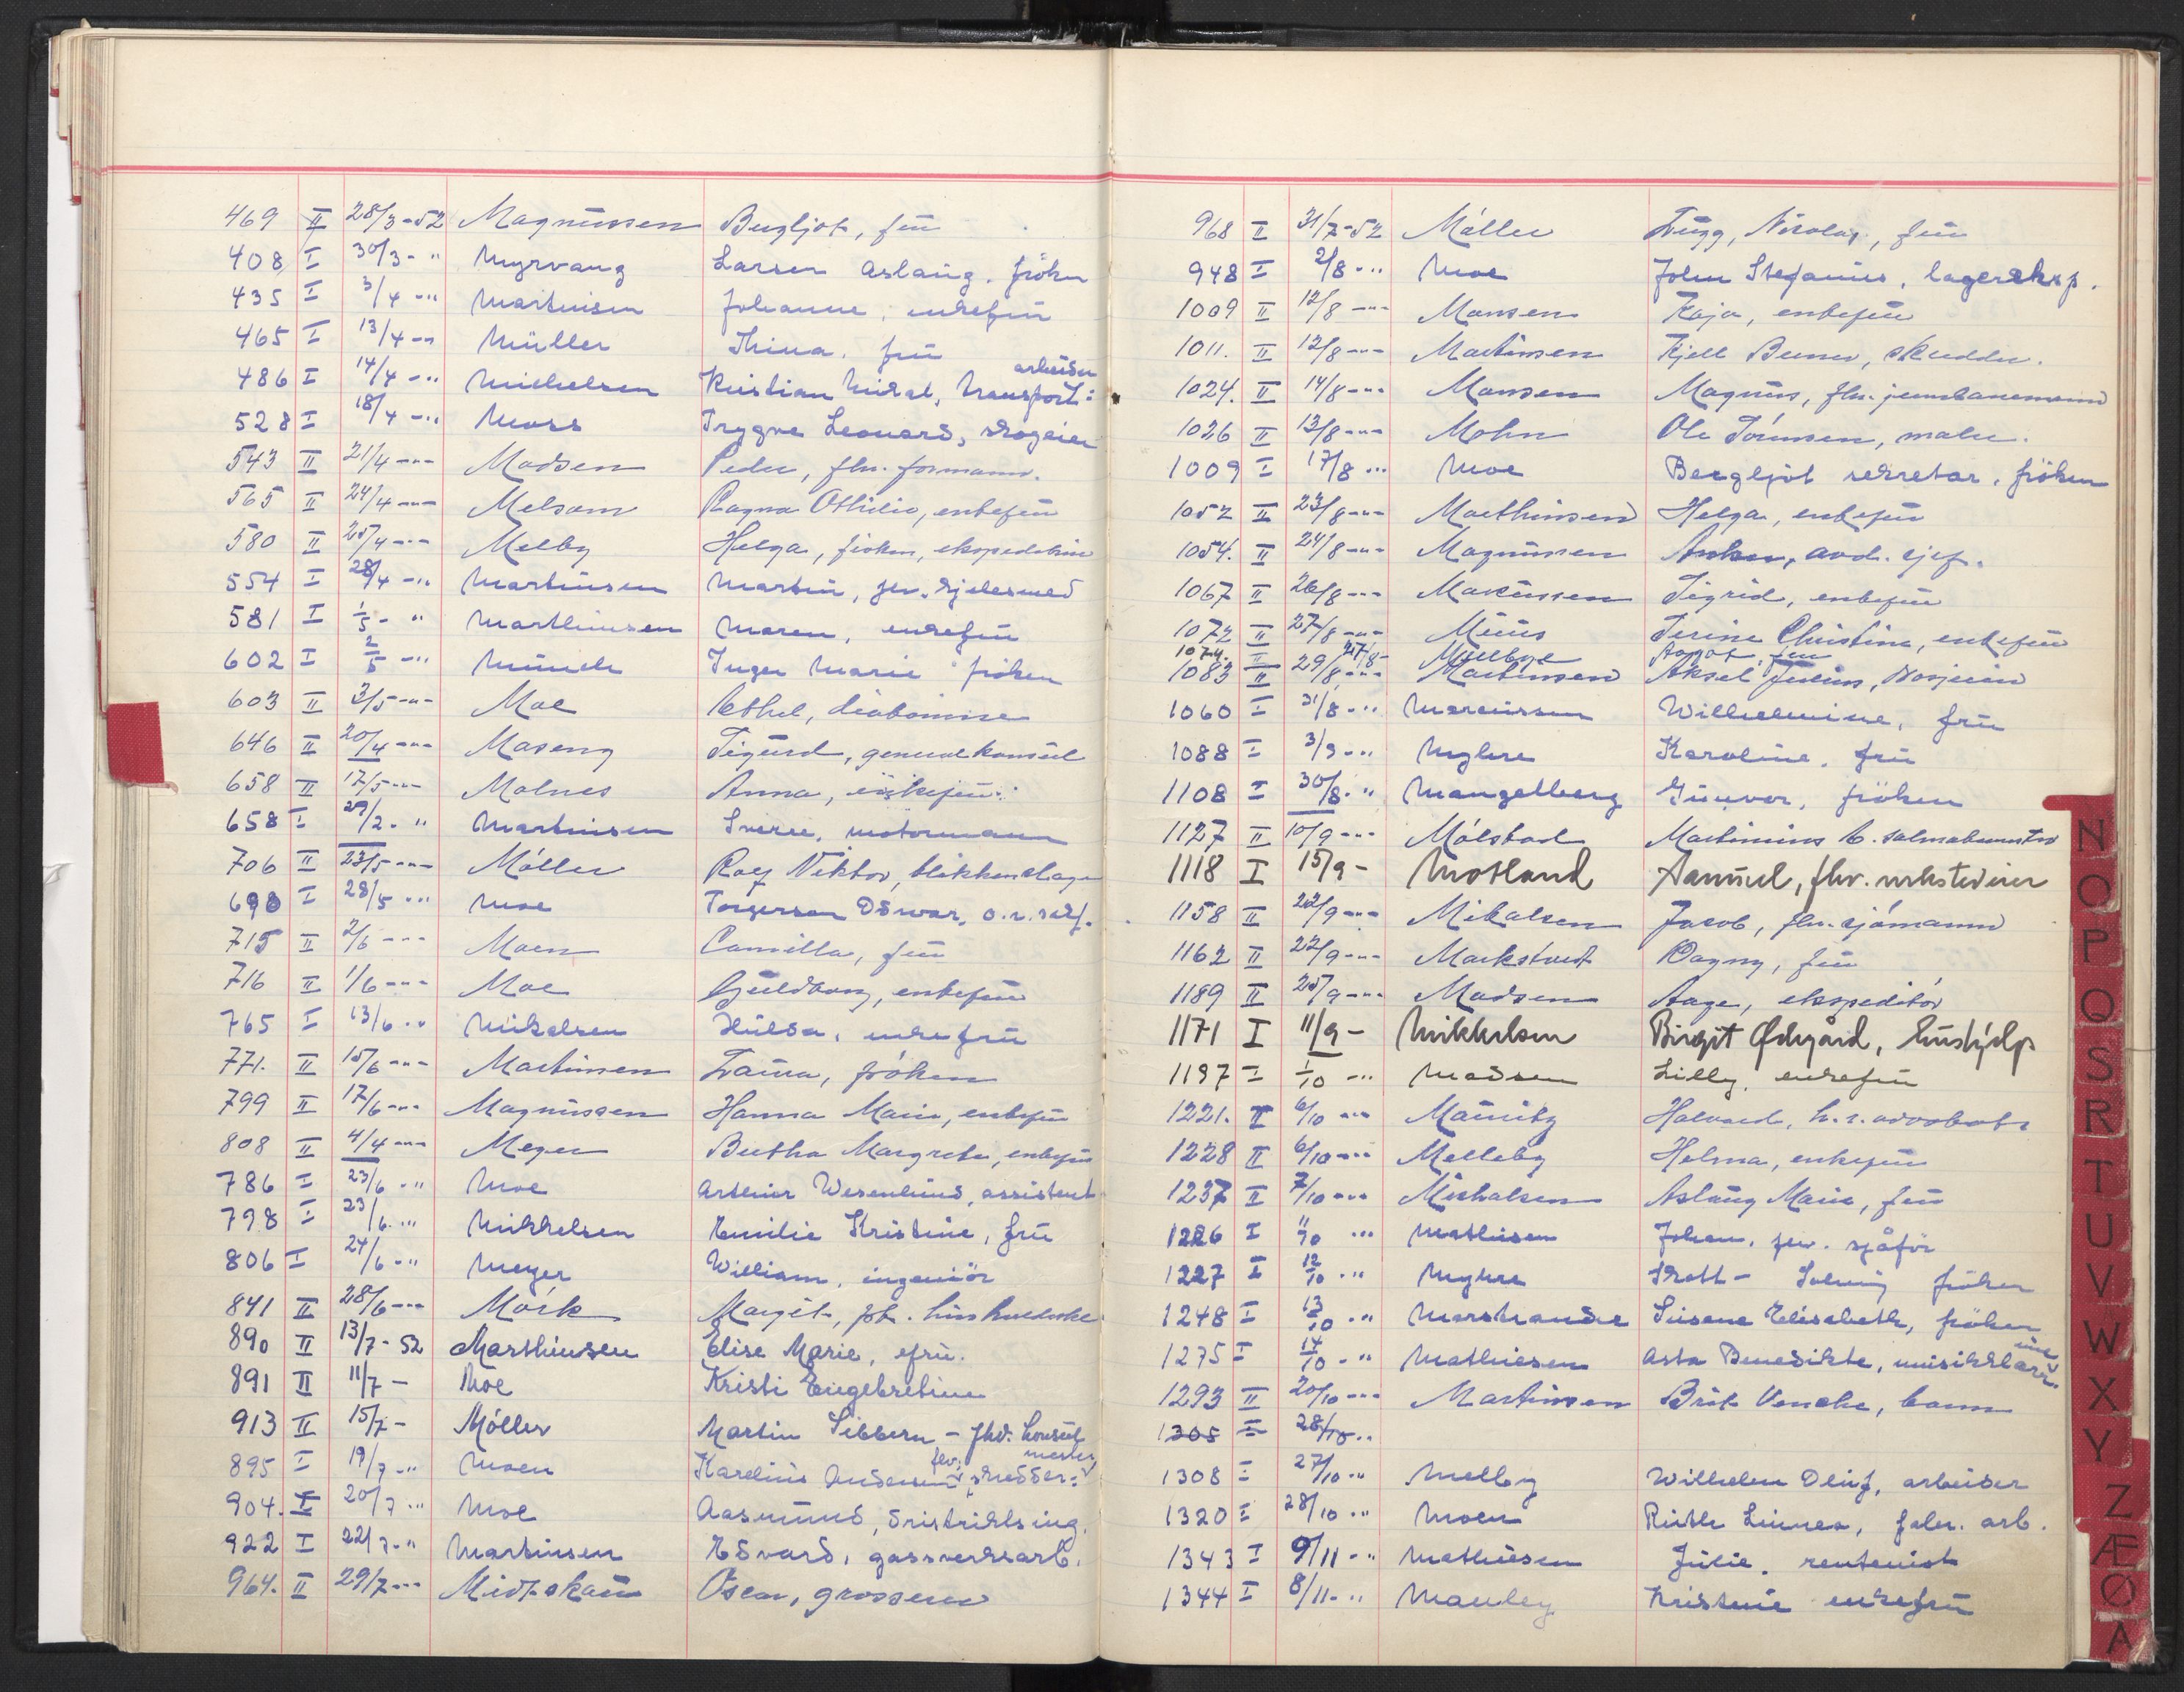 469 II 28/3-52 Magnussen Bergljot, fru
408 I 30/3- " Myrvang Larsen Aslaug. frøken
435 I 3/4 - " Martinsen Johanne, enkefru
465 I 13/4 - " Müller Thina. fru
arbeider
486 I 14/4 - " Michelsen Kristian Mikal, transport:
528 I 18/4 - " Moss Trygve Leonard, skogeier
543 II 21/4 - " - Madsen Peder, fhv. formann.
565 II 24/4 - " - Melsom Ragna Othilie, enkefru
580 II 25/4 - " - Melby Helga, frøken, ekspeditrise
554 I 28/4 - " Martinsen Martin, fhv. kjelesmed
581 I 1/5 - " Marthinsen Maren, enkefru
602 I 2/5 - " Munch Inger Marie frøken
603 II 3/5 - " - Moe Ethel, diakonisse
646 II 20/4 - " - Maseng Sigurd, generalkonsul
658 II 17/5 - " - Molnes Anna, enkefru
658 I 29/2 - " Martinsen Sverre, motormann
706 II 23/5 - " - Möller Rolf Viktor, blikkenslager
698 I 28/5 - " Moe Torgersen Edvar, o.r.sakf.
715 II 2/6 - " - Moen Camilla, fru
716 II 1/6 - " - Moe Guldborg, enkefru
765 I 13/6 - " Mikalsen Hulda, enkefru
771. II 15/6 - " - Martinsen Laura, frøken
799 II 17/6 - " - Magnussen Hanna Marie, enkefru
808 II 4/4 - " - Meyer Bertha Margrete, enkefru
786 I 23/6 - " Moe Arthur Wesenlund, assistent
798 I 23/6 - " Mikkelsen Emilie Kristine, fru
806 I 24/6 - " Meyer William, ingeniör
841 II 28/6 - " - Mörk Margit,
890 II 13/7 - 52 Marthinsen Elise Marie, efru.
891 II 11/7 - Moe Kristi Engebretine
913 II 15/7 - Möller Martin Sibbern - fhv. konsul
fhv. mester
895 I 19/7 - " Moen Karelius Andersen, skredder:
904. I 20/7 - " Moe Aasmund, distriktsing.
922 I 22/7 - " Martinsen Edvard, gassverksarb.
964. II 29/7 - " - Midtskau Oscar, grosserer
968 II 31/7-52 Möller Tugg, Nicolay, fru
948 I 2/8 - " Moe John Stefanus, lagereksp.
1009 II 12/8 - " - Monsen Kaja, enkefru
1011. II 12/8 - " - Martinsen Kjell Berner, skredder.
1024. II 14/8 - " - Monsen Magnus, fhv. jernbanemann
1026 II 13/8 - " - Mohn Ole Tönnesen, maler.
1009 I 17/8 - " Moe Bergljot sekretær, frøken
1052 II 23/8 - " - Marthinsen Helga, enkefru
1054. II 24/8 - " - Magnussen Anker, avd. sjef.
1067 II 26/8 - " - Marcussen Sigrid, enkefru
1072 II 27/8 - " - Muus Terine Christine, enkefru
1074. II 27/8 - Aagot, fru
1083 II 29/8 - " - Martinsen Aksel Julius,
1060 I 31/8 - " Marcussen Wilhelmine, fru
1088 I 3/9 - " Myhre Karoline, fru
1108 I 30/8 - " Mangelberg Gunvor, frøken
1127 II 10/9 - " - Mölstad Martinius
1118 I 15/9 - Motland Samuel, fhv. verkstedeier
1158 II 22/9 - " - Mikalsen Jacob, fhv. sjömann
1162 II 22/9 - " - Markstuet Dagny, fru
1189 II 25/9 - " - Madsen Aage, ekspeditör
1171 I 11/9 - Mikkelsen Birgit Ødegård, hushjelp
1197 I 1/10 - " Madsen Lilly, enkefru
1221. II 6/10 - " - Mauritz Halvard, h.r. advokat
1228 II 6/10 - " - Melleby Helma, enkefru
1237 II 7/10 - " - Michalsen Aslaug Marie, fru
1226 I 11/10 - " Mathisen Johan, fhv. sjåför
1227 I 12/10 - " Myhre Skott- Solveig frøken
1248 I 13/10 - " Marstrander Susane Elisabeth, frøken
1275 I 14/10 - " Mathiesen Asta Benedikte, musikklærer
inne
1293 II 20/10 - " - Martinsen Brit Venche, barn
1305 I 28/10 - "
1308 I 27/10 - " Melby Wilhelm Oluf, arbeider
1320 I 28/10 - " Moen Ruth Linnea, fabr. arb.
1343 I 9/11 - " Mathiesen Julie, rentenist
1344 I 8/11 - " Manley Kristine enkefru
N
O
P
Q
S
R
T
U
V
W
X
Y
Z
Æ
Ø
A